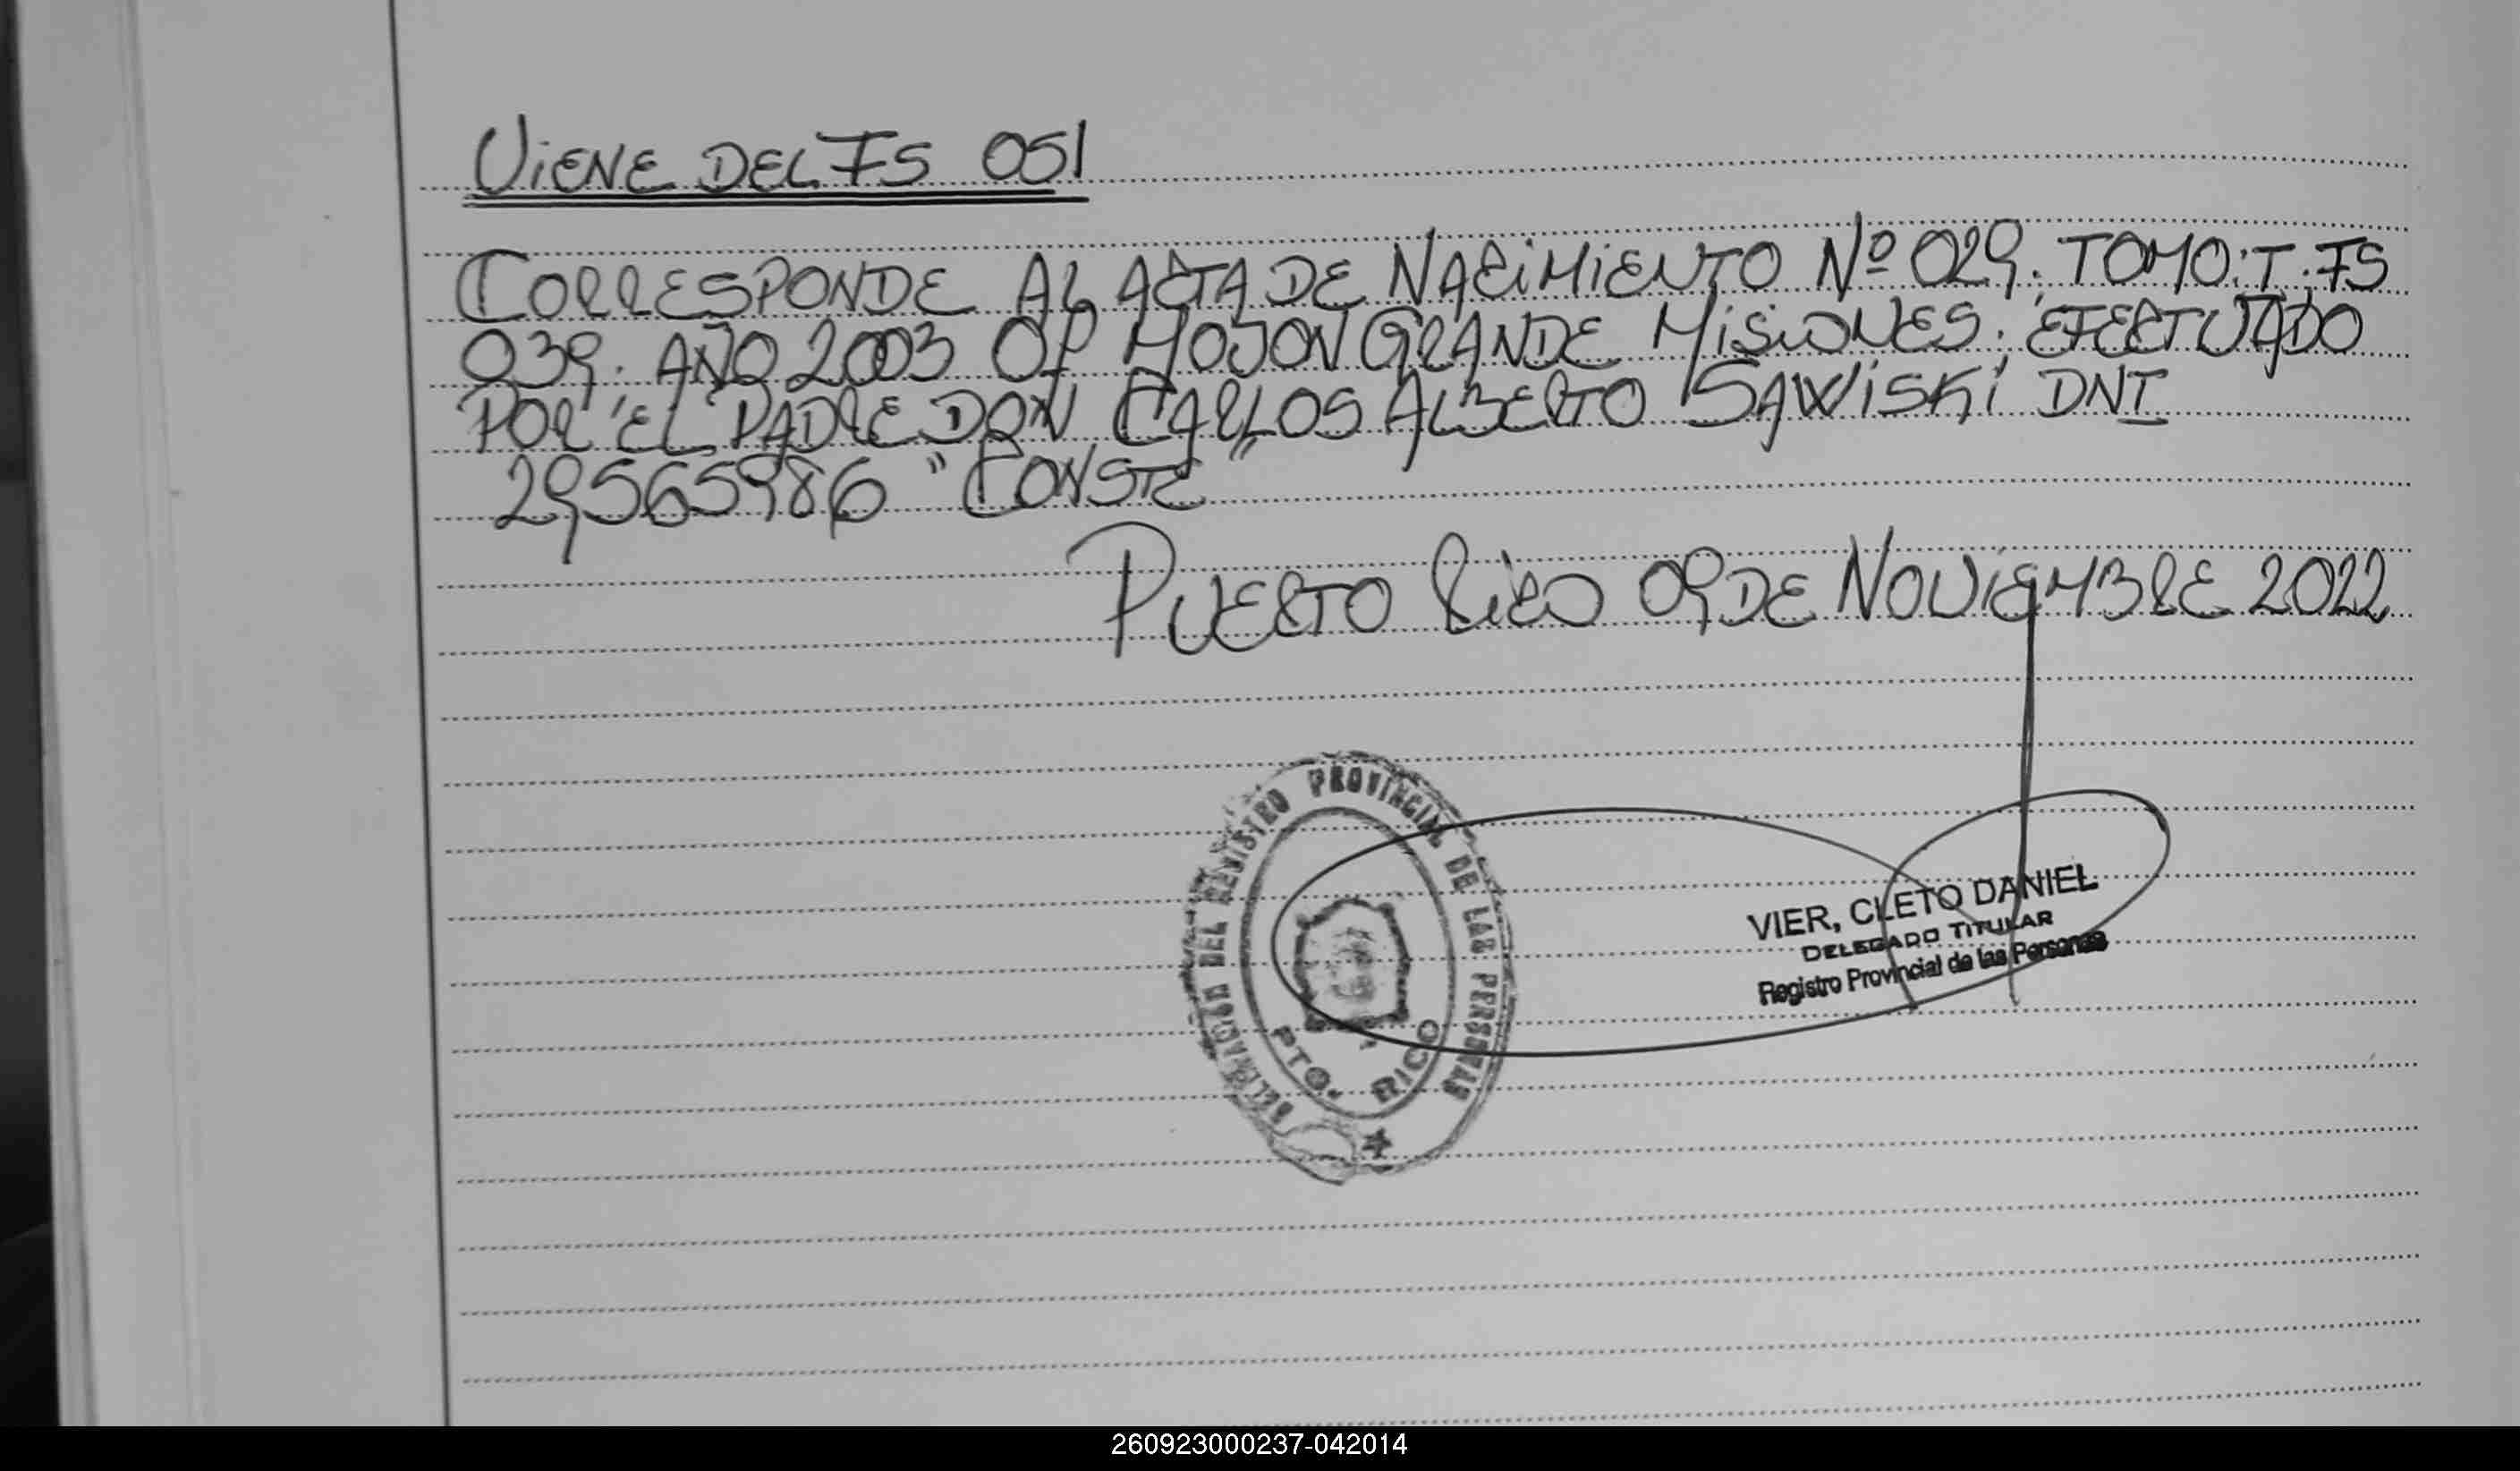 VIENE DEL FS 051
CORRESPONDE AL ACTA DE NACIMIENTO Nº 029. TOMO: I. FS
039. AÑO 2003 OF MOJON GRANDE MISIONES. EFECTUADO
POR EL PADRE DON CARLOS ALBERTO SAWISKI DNI
29565986 "CONSTE"
PUERTO RICO 09 DE NOVIEMBRE 2022
DELEGACION DEL REGISTRO PROVINCIAL DE LAS PERSONAS
PTO. RICO
VIER, CLETO DANIEL
DELEGADO TITULAR
Registro Provincial de las Personas
260923000237-042014